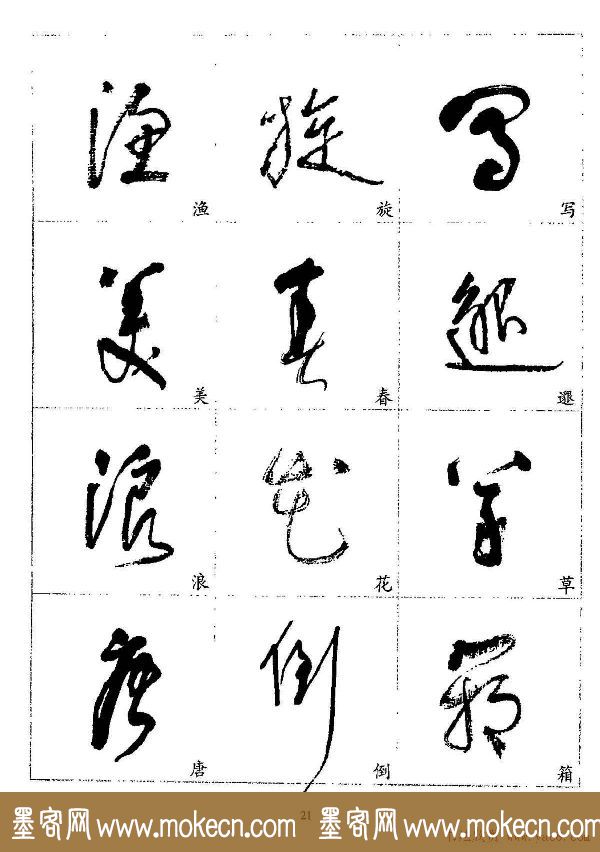 渔 旋 写
渔 旋 写
美 春
美 春
浪 花 草
浪 花 草
唐 倒 箱
唐 倒 箱
21
墨客网 www.mokecn.com 墨客网 www.mokecn.com